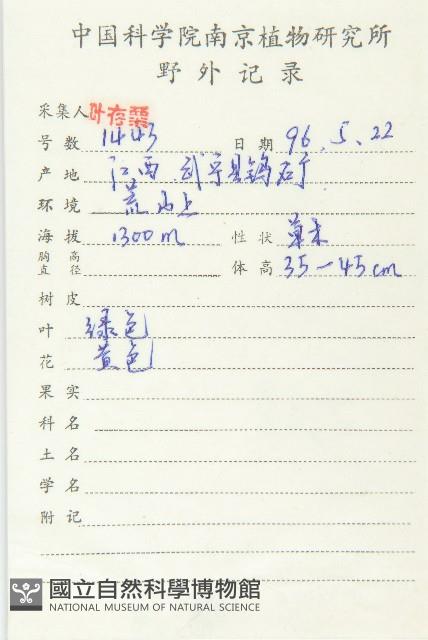 中国科学院南京植物研究所
野外记录
采集人 叶存粟
号数 1443 日期 96.5.22
产地 江西 武宁县钨矿
环境 荒山上
海拔 1300m 性状 草本
胸高直径 体高 35—45cm
树皮
叶 绿色
花 黄色
果实
科名
土名
学名
附记
國立自然科學博物館
NATIONAL MUSEUM OF NATURAL SCIENCE